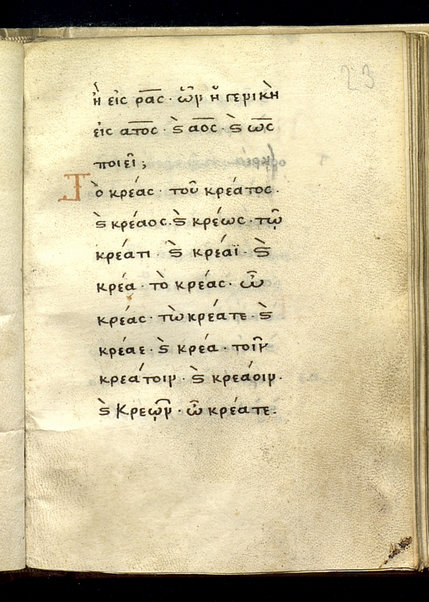 23
ἢ εἰς ρας · ὧν ἡ γενικὴ
εἰς ατος · ϗ αος · ϗ ως
ποιεῖ ;
Τὸ κρέας · τοῦ κρέατος ·
ϗ κρέαος · ϗ κρέως · τῷ
κρέατι · ϗ κρέαϊ · ϗ
κρέα · τὸ κρέας · ὦ
κρέας · τὼ κρέατε · ϗ
κρέαε · ϗ κρέα · τοῖν
κρεάτοιν · ϗ κρεάοιν ·
ϗ κρεῷν · ὦ κρέατε ·